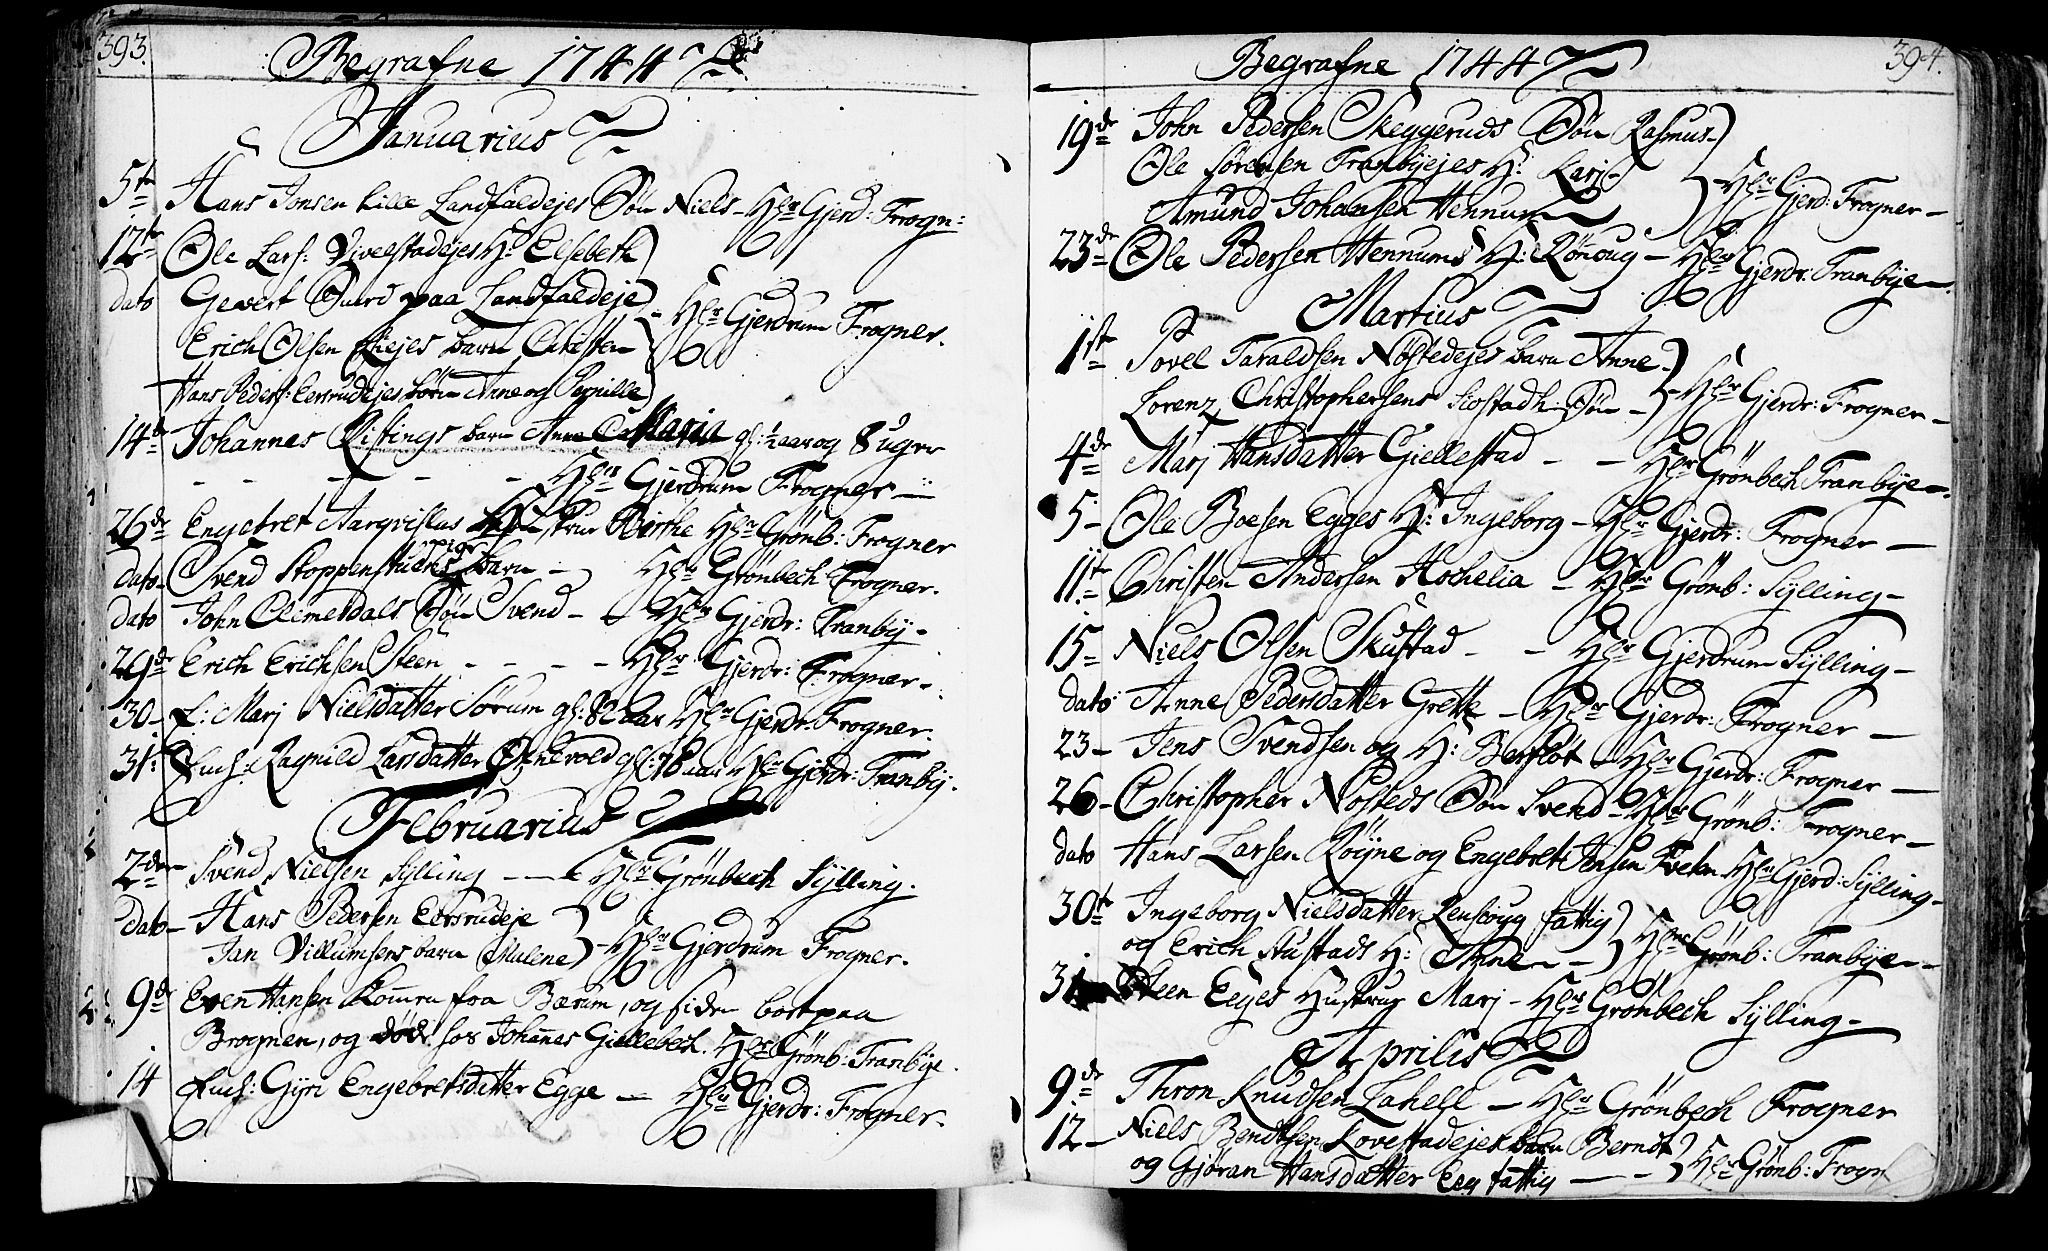 393.
Begrafne 1744
Januarius
5te Hans Jonsen Lille Landfaldejes Søn Niels - Hlr Gjerd: Frogn:
12te Ole Lars: Viveelstadejes H: Elsebeth
dato Gewert paa Landfaldeje
Erich Olsen barn Christen - Hlr Gjerdrum Frogner.
Hans Peders: Eersrudejes børn Anne og Pernille
14de Johannes Risting's barn Anna Maria gl: 1/2 aar og 8 uger
- - - - - Hlr Gjerdrum Frogner -
26de Engebret Hustrue Birthe Hlr Grønb: Frogner
dato - Svend Stoppenstuens pige barn - Hlr Grønbech Frogner.
dato John Climesdals Søn Svend - - Hlr Gjerdr: Tranby -
29de Erich Erichsen Steen - - - - Hlr Gjerdr: Frogner -
30 - L: Marj Nielsdatter Sørum gl: 82 aar Hlr Gjerdr: Frogner.
31: Ragnild Larsdatter gl: 78 aar Hlr Gjerdr: Tranby.
Februarius
2den - Svend Nielsen Sylling - - - Hlr Grønbech Sylling.
dato - Hans Pedersen Eersrudeje
Jan Villumsens barn Malene - Hlr Gjerdrum Frogner.
9de Even Hansen kommen fra Bærum, og siden bort paa
Brognen, og døde hos Johannes Giellebech. Hlr Grønb: Tranbye.
14 Gyri Engebretsdatter Egge - Hlr Gjerdr: Frogner -
394.
Begrafne 1744
19de John Pedersen Skeggeruds Søn Rasmus -
Ole Sørensen Tranbyejes H: Kari - Hlr Gjerd: Frogner -
Amund Johansen Hennum
23de Ole Pedersen Hennums H: Rønoug - Hlr Gjerdr: Tranbye -
Martius
1ste Povel Taraldsen Nøstedejes barn Anne -
Lorenz Christophersens Søn - Hlr Gjerdr: Frogner -
4de Marj Hansdatter Giellestad - - Hlr Grønbech Tranbye -
5 - Ole Boesen Egges H: Ingeborg - Hlr Gjerdr: Frogner -
11te Christen Andersen - Hlr Grønb: Sylling -
15 - Niels Olsen Skustad - - Hlr Gjerdrum Sylling -
dato Anne Pedersdatter Grette - Hlr Gjerdr: Frogner -
23 - Jens Svendsen og H: Berthe - Hlr Gjerdr: Frogner -
26 - Christopher Nøsteds Søn Svend - Hlr Grønb: Frogner -
dato Hans Larsen Røyne og Engebret Jensen Hlr Gjerd: Sylling -
30te Ingeborg Nielsdatter fattig
og Erich Stustads H: Anne - - Hlr Grønb: Tranbye -
31 Steen Egges Hustrue Marj - Hlr Grønbech Sylling -
Aprilis
9de Thron Knudsen Lahell - Hlr Grønbech Frogner
12 - Niels Bendtsen Lovestadejes barn Berndt
og Gjøran Hansdatter Eeg fattig - - Hlr Grønb: Frogn